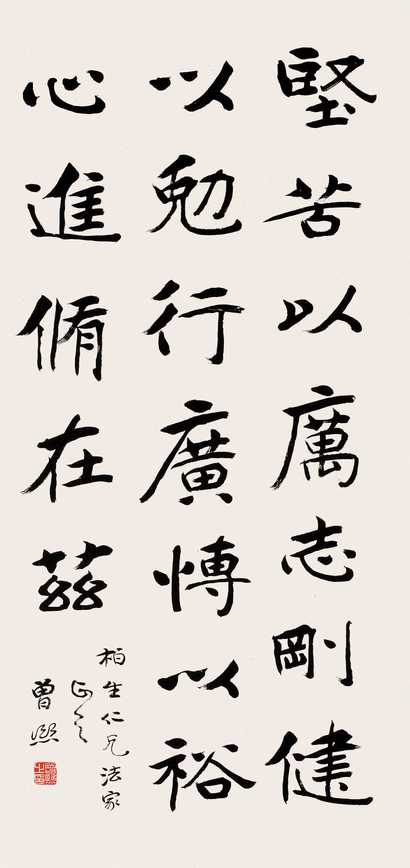 堅苦以厲志剛健
以勉行廣愽以裕
心進脩在茲
柏生仁兄法家
正之
曾熙